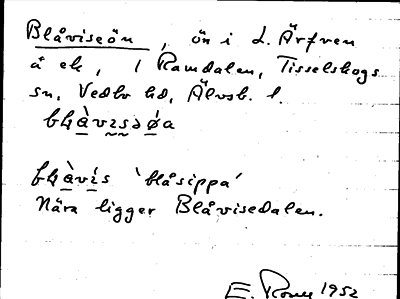 Blåviseön, ön i L. Ärfven
å ek, i Ramdalen, Tisselskogs
sn, Vedbo hd, Älvsb. l.
bḷàvɩsəǿa
bḷàvís 'blåsippa'
Nära ligger Blåvisedalen.
E. 1952